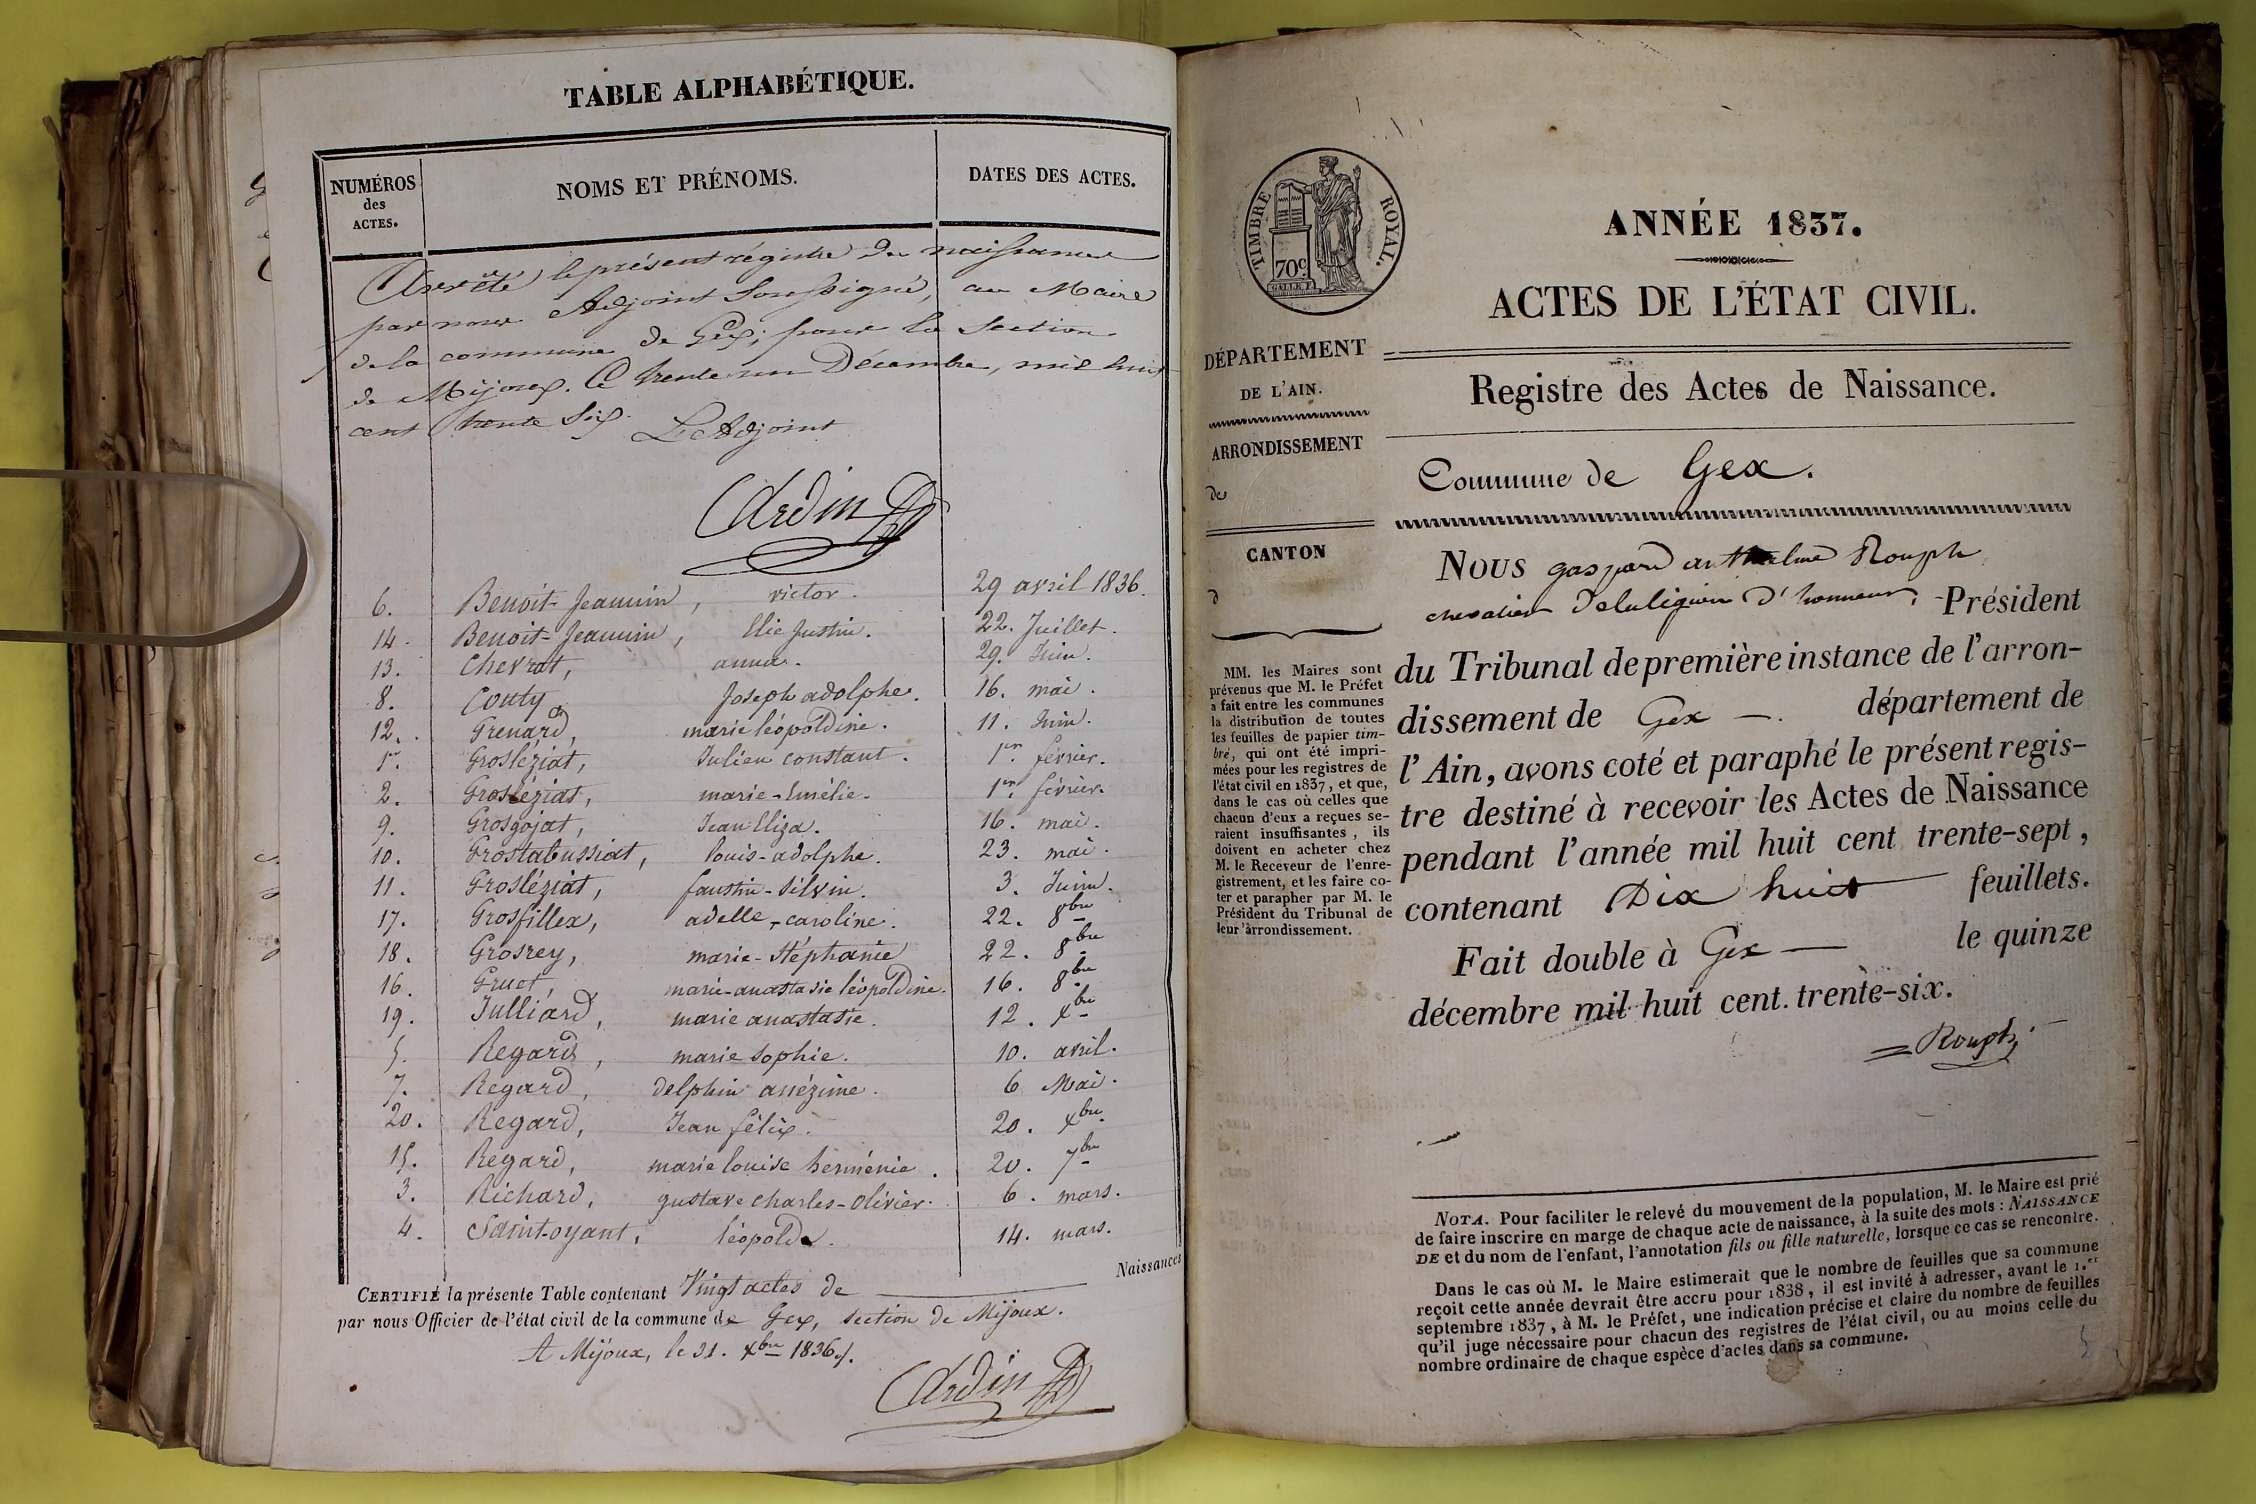 TABLE ALPHABÉTIQUE.
NUMÉROS
des
ACTES.
NOMS ET PRÉNOMS.
DATES DES ACTES.
Arrêté le présent régistre de naissances
par nous Adjoint Soussigné, au Maire
de la commune de Gex; pour la Section
de Mijoux. Ce trente un Décembre, mil huit
cent trente Six.
L'Adjoint
Ardin
6. Benoit-Jeannin, victor. 29 avril 1836.
14. Benoit-Jeannin, Elie Justin. 22. Juillet.
13. Chevrat, anna. 29. Juin.
8. Couty Joseph adolphe. 16. mai.
12. Grenard, marie léopoldine. 11. Juin.
1er. Grosléziat, Julien constant. 1er. février.
2. Grosléziat, marie-Emélie. 1er. février.
9. Grosgojat, Jean Eliza. 16. mai.
10. Grostabussiat, louis-adolphe. 23. mai.
11. Grosléziat, faustin-Silvin. 3. Juin.
17. Grosfillex, adelle-caroline. 22. 8bre
18. Grosrey, marie-Stéphanie 22. 8bre
16. Gruet, marie-anastasie léopoldine. 16. 8bre
19. Julliard, marie anastasie. 12. xbre
5. Regard, marie Sophie. 10. avril.
7. Regard, delphin anézime. 6 Mai.
20. Regard, Jean félix. 20. xbre
15. Regard, marie louise herménie. 20. 7bre
3. Richard, gustave charles-Olivier. 6. mars.
4. Saint-oyant, léopold. 14. mars.
CERTIFIÉ la présente Table contenant Vingt actes de Naissances
par nous Officier de l'état civil de la commune de Gex, section de Mijoux.
A Mijoux, le 31. xbre 1836.
Ardin
TIMBRE ROYAL.
70c.
ANNÉE 1837.
ACTES DE L'ÉTAT CIVIL.
DÉPARTEMENT
DE L'AIN.
ARRONDISSEMENT
de
CANTON
d
Registre des Actes de Naissance.
Commune de Gex.
NOUS gaspard anthelme Rouph
chevalier de la légion d'honneur, Président
du Tribunal de première instance de l'arron-
dissement de Gex département de
l'Ain, avons coté et paraphé le présent regis-
tre destiné à recevoir les Actes de Naissance
pendant l'année mil huit cent trente-sept,
contenant Dix huit feuillets.
Fait double à Gex le quinze
décembre mil huit cent trente-six.
Rouph
MM. les Maires sont
prévenus que M. le Préfet
a fait entre les communes
la distribution de toutes
les feuilles de papier tim-
bré, qui ont été impri-
mées pour les registres de
l'état civil en 1837, et que,
dans le cas où celles que
chacun d'eux a reçues se-
raient insuffisantes, ils
doivent en acheter chez
M. le Receveur de l'enre-
gistrement, et les faire co-
ter et parapher par M. le
Président du Tribunal de
leur arrondissement.
NOTA. Pour faciliter le relevé du mouvement de la population, M. le Maire est prié
de faire inscrire en marge de chaque acte de naissance, à la suite des mots : NAISSANCE
DE et du nom de l'enfant, l'annotation fils ou fille naturelle, lorsque ce cas se rencontre.
Dans le cas où M. le Maire estimerait que le nombre de feuilles que sa commune
reçoit cette année devrait être accru pour 1838, il est invité à adresser, avant le 1.er
septembre 1837, à M. le Préfet, une indication précise et claire du nombre de feuilles
qu'il juge nécessaire pour chacun des registres de l'état civil, ou au moins celle du
nombre ordinaire de chaque espèce d'actes dans sa commune.